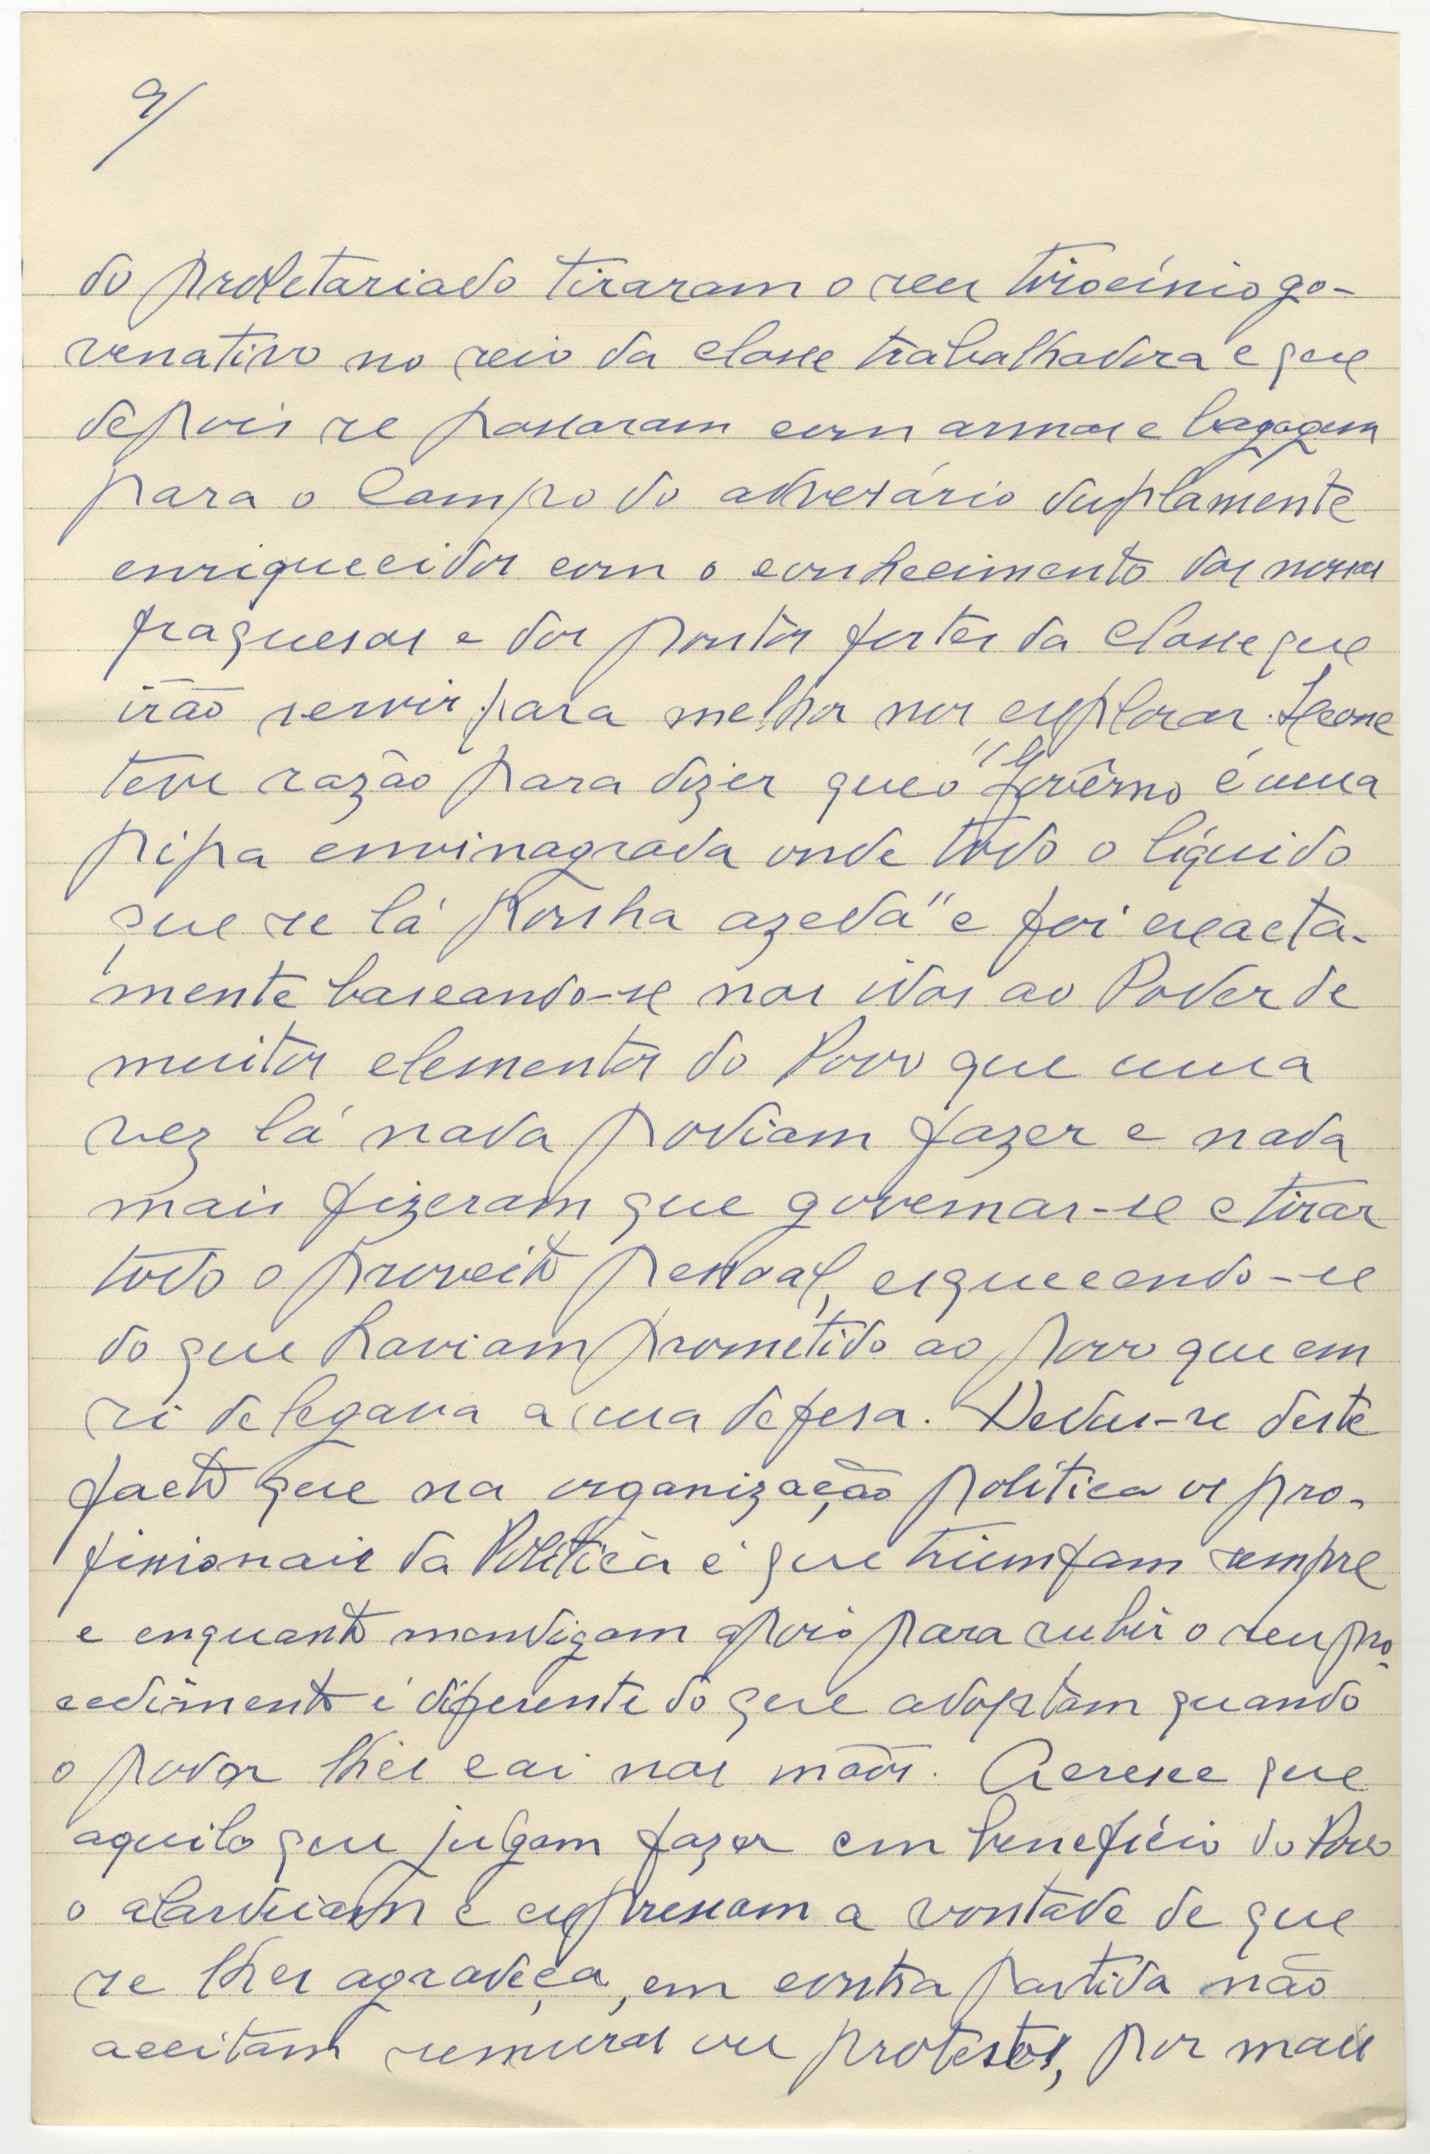 9/
do proletariado tiraram o seu tirocínio go-
venativo no seio da classe trabalhadora e que
depois se passaram com armas e bagagem
para o Campo do adversário duplamente
enriquecidos com o conhecimento das nossas
fraquesas e dos pontos fortes da Classe que
irão servir para melhor nos explorar.
teve razão para dizer que o "Govêrno é uma
pipa envinagrada onde todo o líquido
que se lá ponha azeda" e foi exacta-
mente baseando-se nas idas ao Poder de
muitos elementos do Povo que uma
vez lá nada podiam fazer e nada
mais fizeram que governar-se e tirar
todo o proveito pessoal, esquecendo-se
do que haviam prometido ao povo que em
si delegava a sua defesa. Deduz-se deste
facto que na organização política os pro-
fissionais da Política é que triunfam sempre
e enquanto mendigam apoio para subir o seu pro-
cedimento é diferente do que adoptam quando
o poder lhes cai nas mãos. Acresce que
aquilo que julgam fazer em benefício do Povo
o alardeiam e expressam a vontade de que
se lhes agradeça, em contra partida não
aceitam censuras ou protestos, por mais